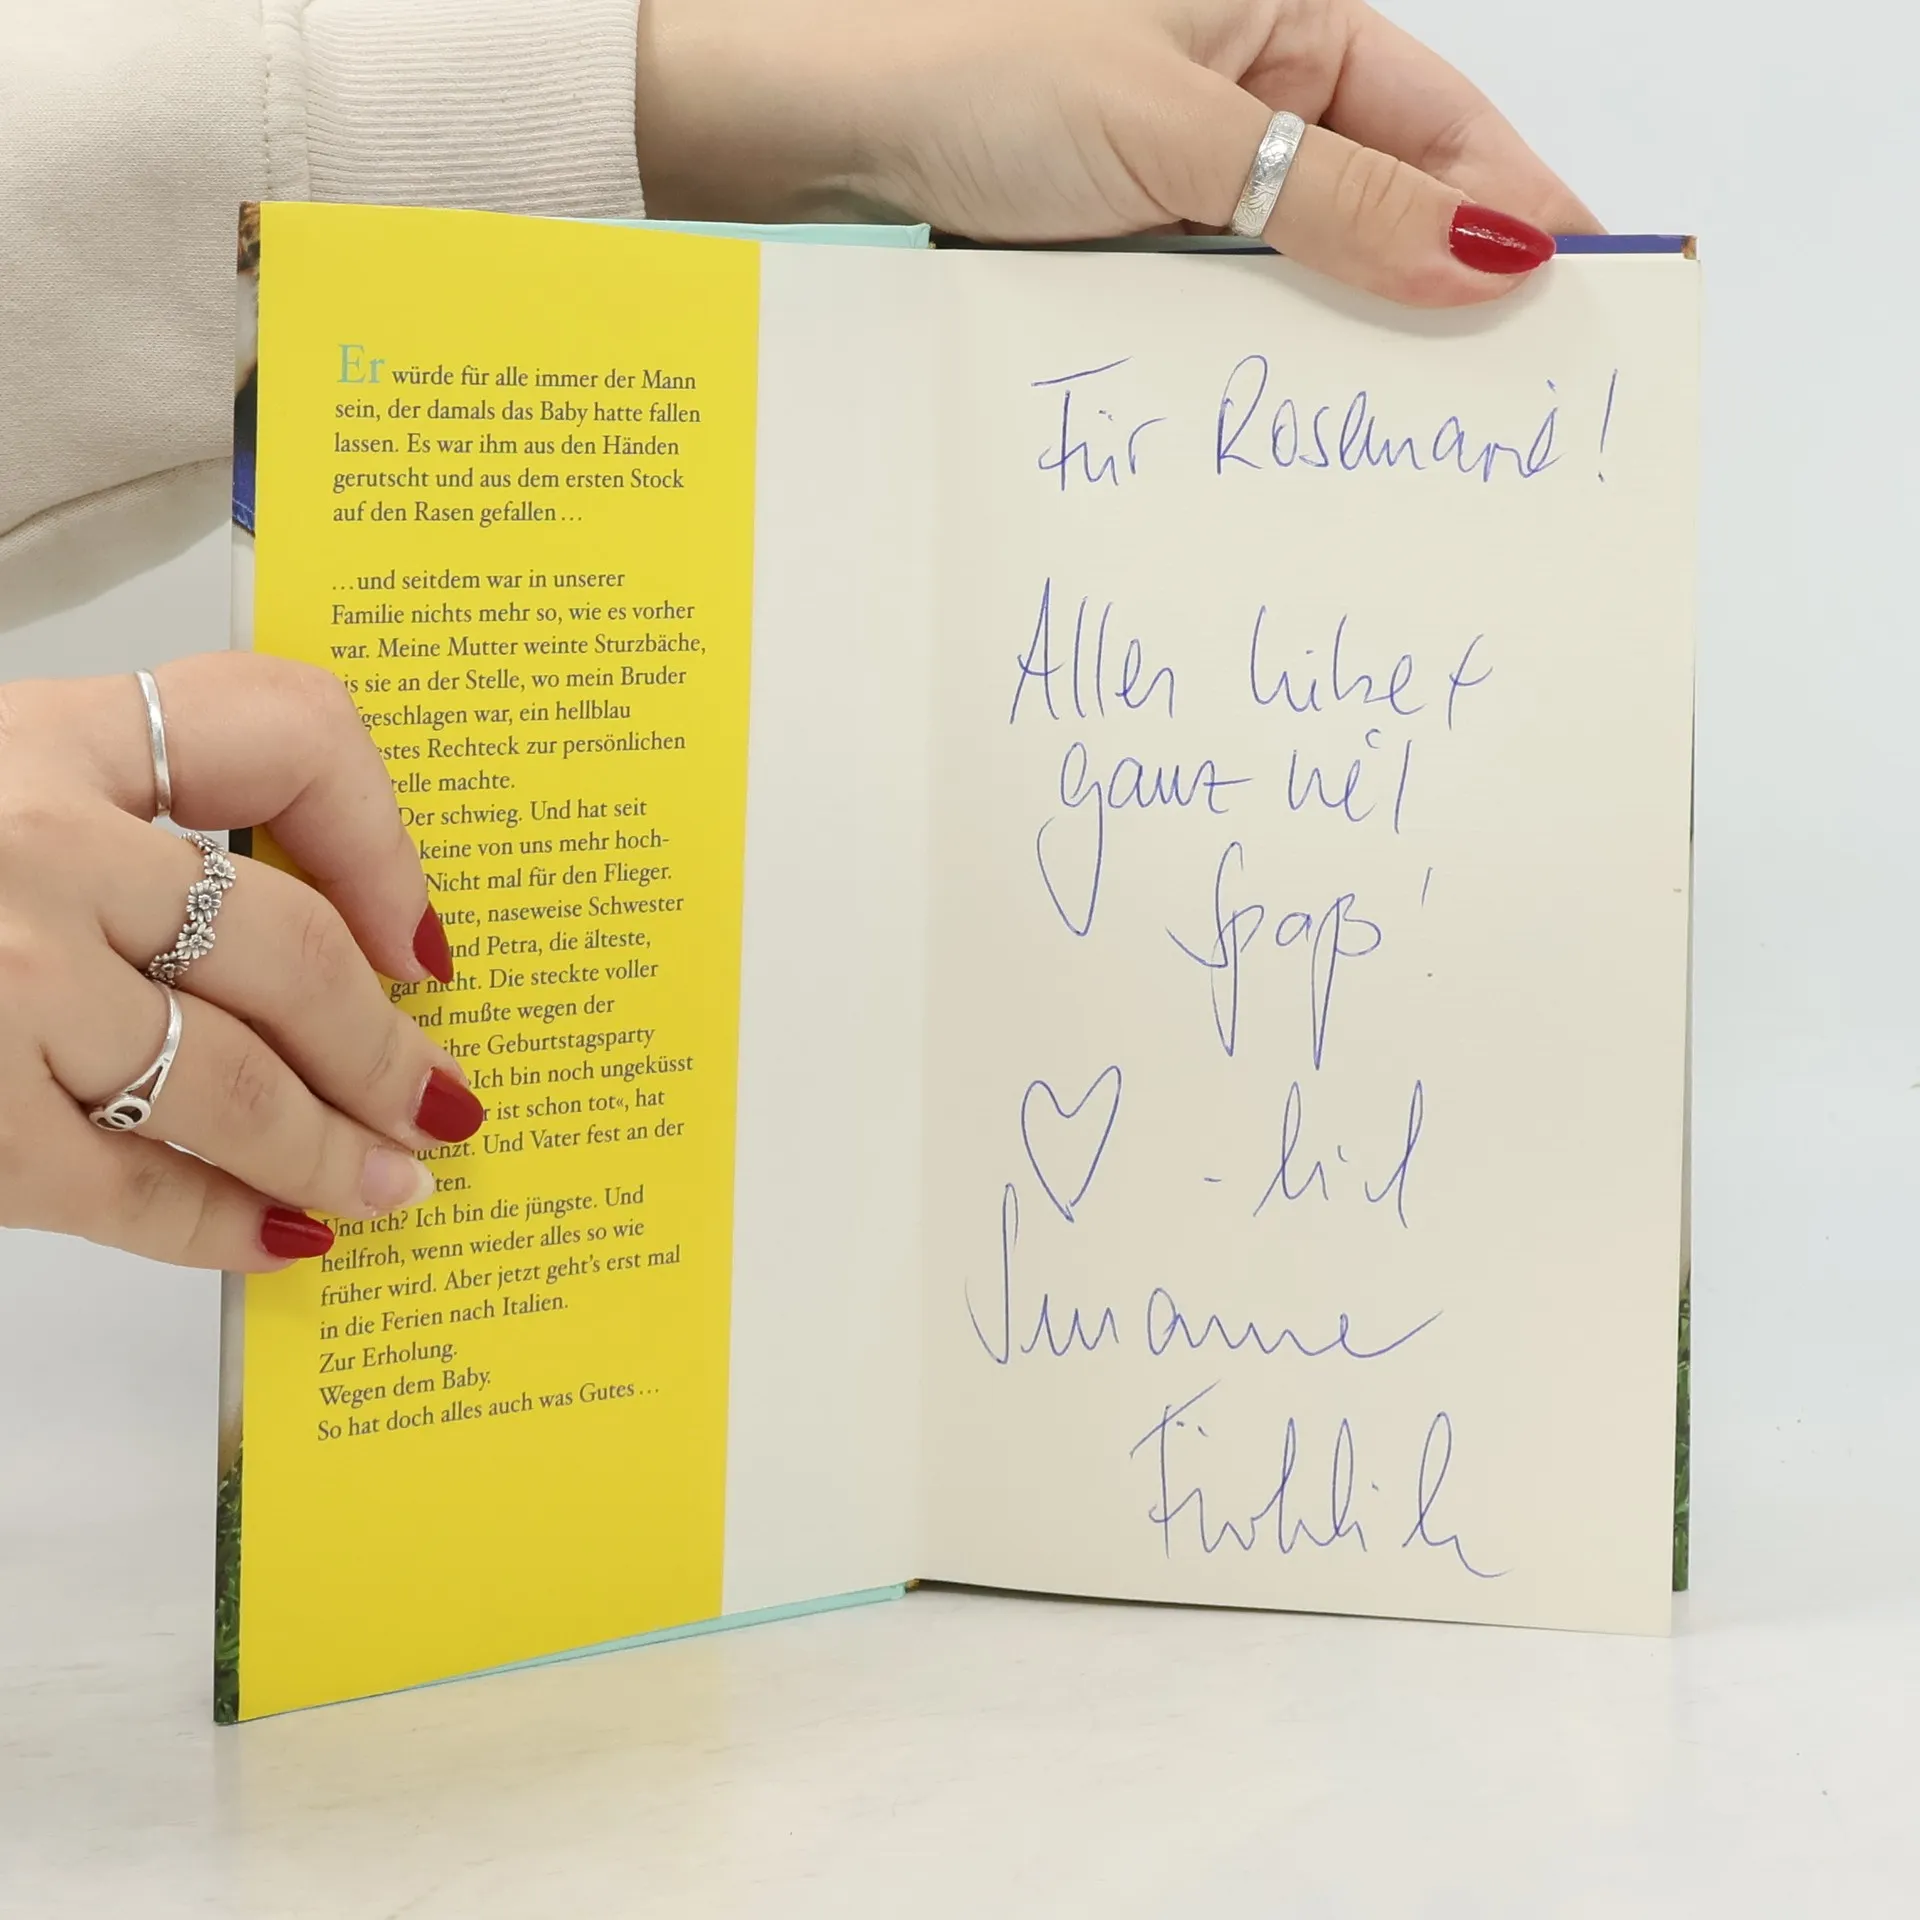 Er würde für alle immer der Mann
sein, der damals das Baby hatte fallen
lassen. Es war ihm aus den Händen
gerutscht und aus dem ersten Stock
auf den Rasen gefallen…
…und seitdem war in unserer
Familie nichts mehr so, wie es vorher
war. Meine Mutter weinte Sturzbäche,
sie an der Stelle, wo mein Bruder
geschlagen war, ein hellblau
Rechteck zur persönlichen
machte.
Der schwieg. Und hat seit
keine von uns mehr hoch-
Nicht mal für den Flieger.
naseweise Schwester
und Petra, die älteste,
gar nicht. Die steckte voller
und mußte wegen der
ihre Geburtstagsparty
»Ich bin noch ungeküsst
ist schon tot«, hat
Und Vater fest an der
Und ich? Ich bin die jüngste. Und
heilfroh, wenn wieder alles so wie
früher wird. Aber jetzt geht's erst mal
in die Ferien nach Italien.
Zur Erholung.
Wegen dem Baby.
So hat doch alles auch was Gutes…
Für Rosemarie!
Alles Liebe +
ganz viel
Spaß!
♡ - lich
Susanne
Fröhlich